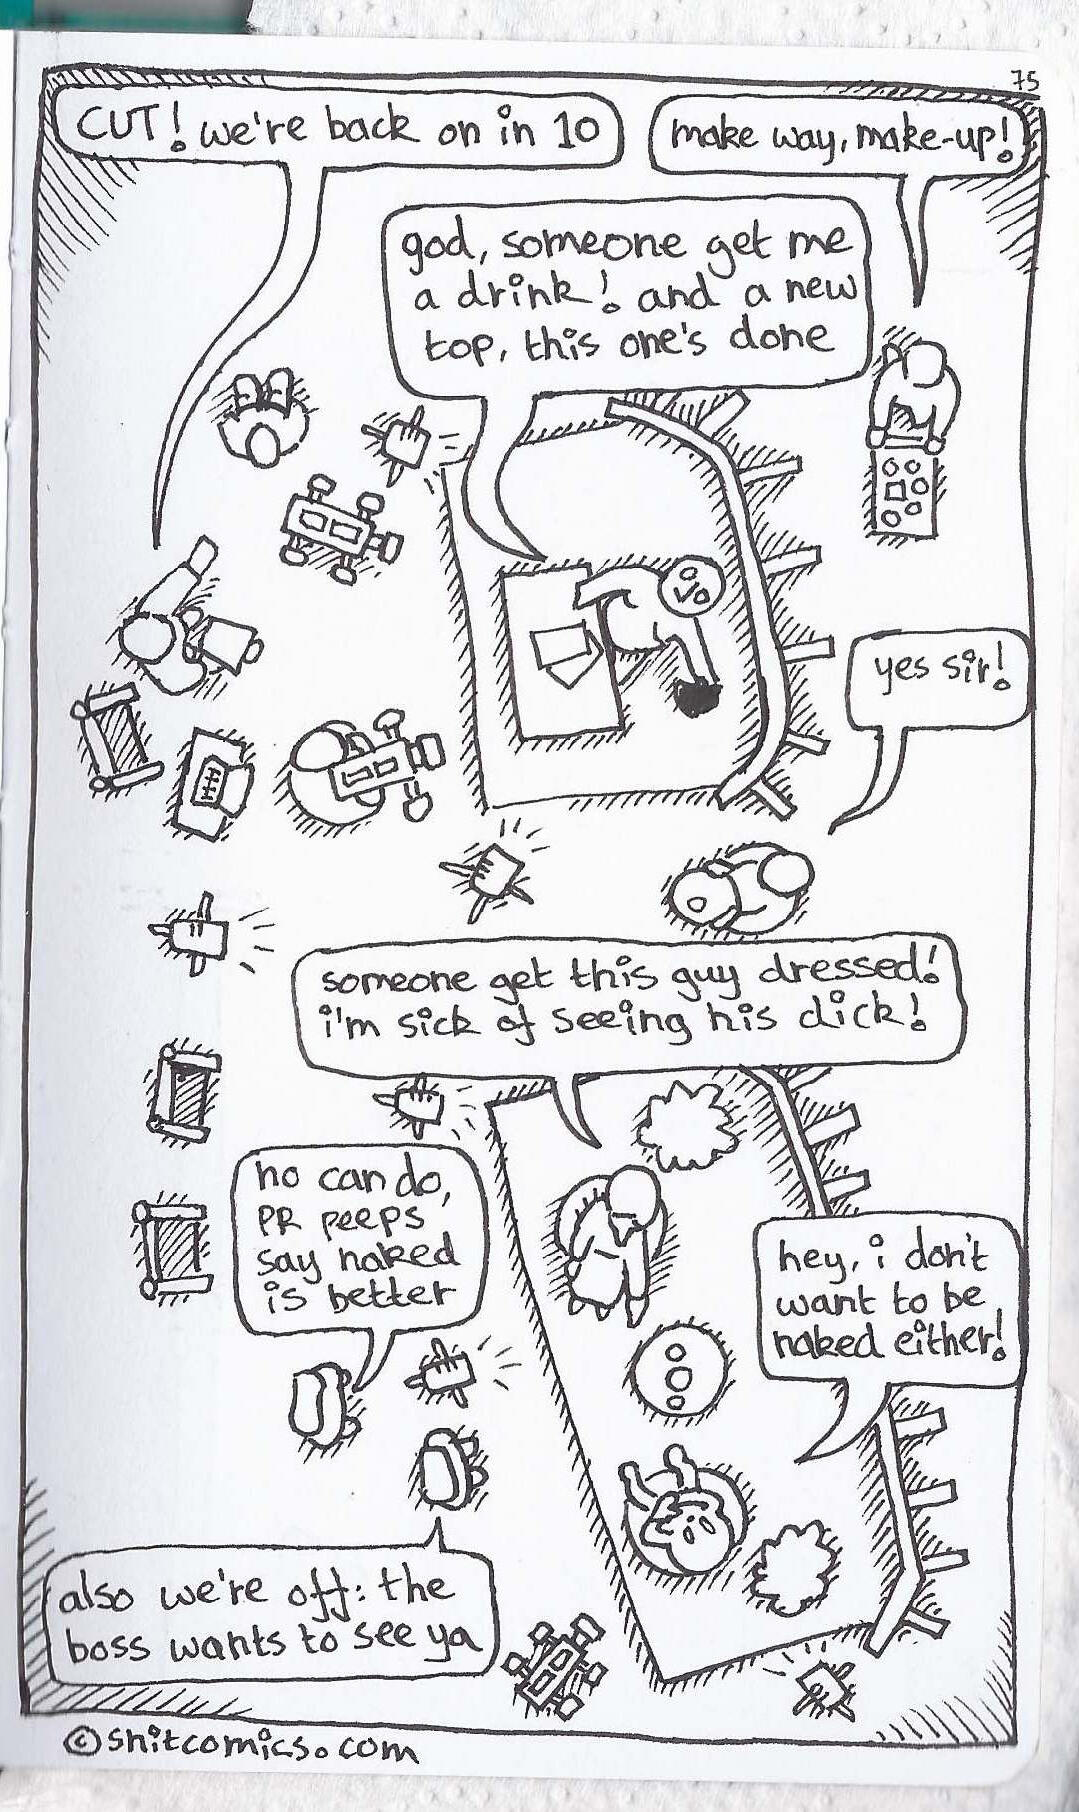 75
CUT! we're back on in 10
make way, make-up!
god, someone get me
a drink! and a new
top, this one's done
yes sir!
someone get this guy dressed!
i'm sick of seeing his dick!
no can do,
PR peeps
say naked
is better
hey, i don't
want to be
naked either!
also we're off: the
boss wants to see ya
©shitcomics.com